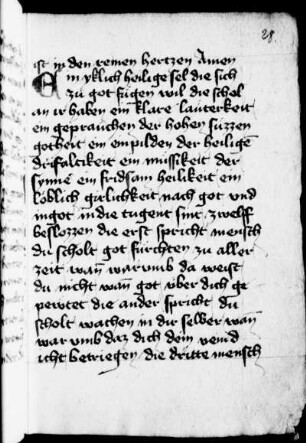 28.
ist in den reinen hertzen Amen
Ein yklich heilige sel die sich
zu got fugen wil die schol
an ir haben ein klare lauterkeit
ein geprauchen der hohen suzzen
gotheit ein enpilden der heiligē
drifaltikeit ein mussikeit der
synnē ein fridsam heilikeit ein
loblich gutlichkeit nach got vnd
in got in die tugent sint zwelff
beslozzen die erst spricht mensch
du scholt got furchten zu aller
zeit wañ warumb da weist
du nicht wañ got vber dich ge
pewtet die ander spricht du
scholt wachen in dir selber wañ
warumb daz dich dein veind
icht betriegen die dritte mensch